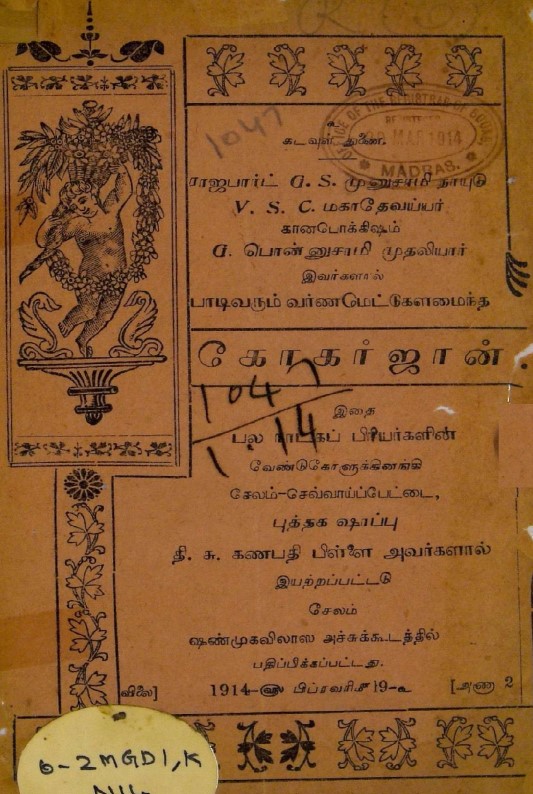 1047
கடவுள் துணை.
OFFICE OF THE REGISTRAR OF BOOKS
REGISTERED
MAR 1914
MADRAS.
ராஜபார்ட் G. S. முனுசாமி நாயுடு
V. S. C. மகாதேவய்யர்
கானபொக்கிஷம்
G. பொன்னுசாமி முதலியார்
இவர்களால்
பாடிவரும் வர்ணமெட்டுகளமைந்த
கோகர்ஜான்.
1047
1.14
இதை
பல நாடகப் பிரியர்களின்
வேண்டுகோளுக்கிணங்கி
சேலம்-செவ்வாய்ப்பேட்டை,
புத்தக ஷாப்பு
தி. சு. கணபதி பிள்ளை அவர்களால்
இயற்றப்பட்டடு
சேலம்
ஷண்முகவிலாஸ அச்சுக்கூடத்தில்
பதிப்பிக்கப்பட்டது.
விலை] 1914-௵ பிப்ரவரி௴ 19-௳ [அணா 2
6-2MGD1,K